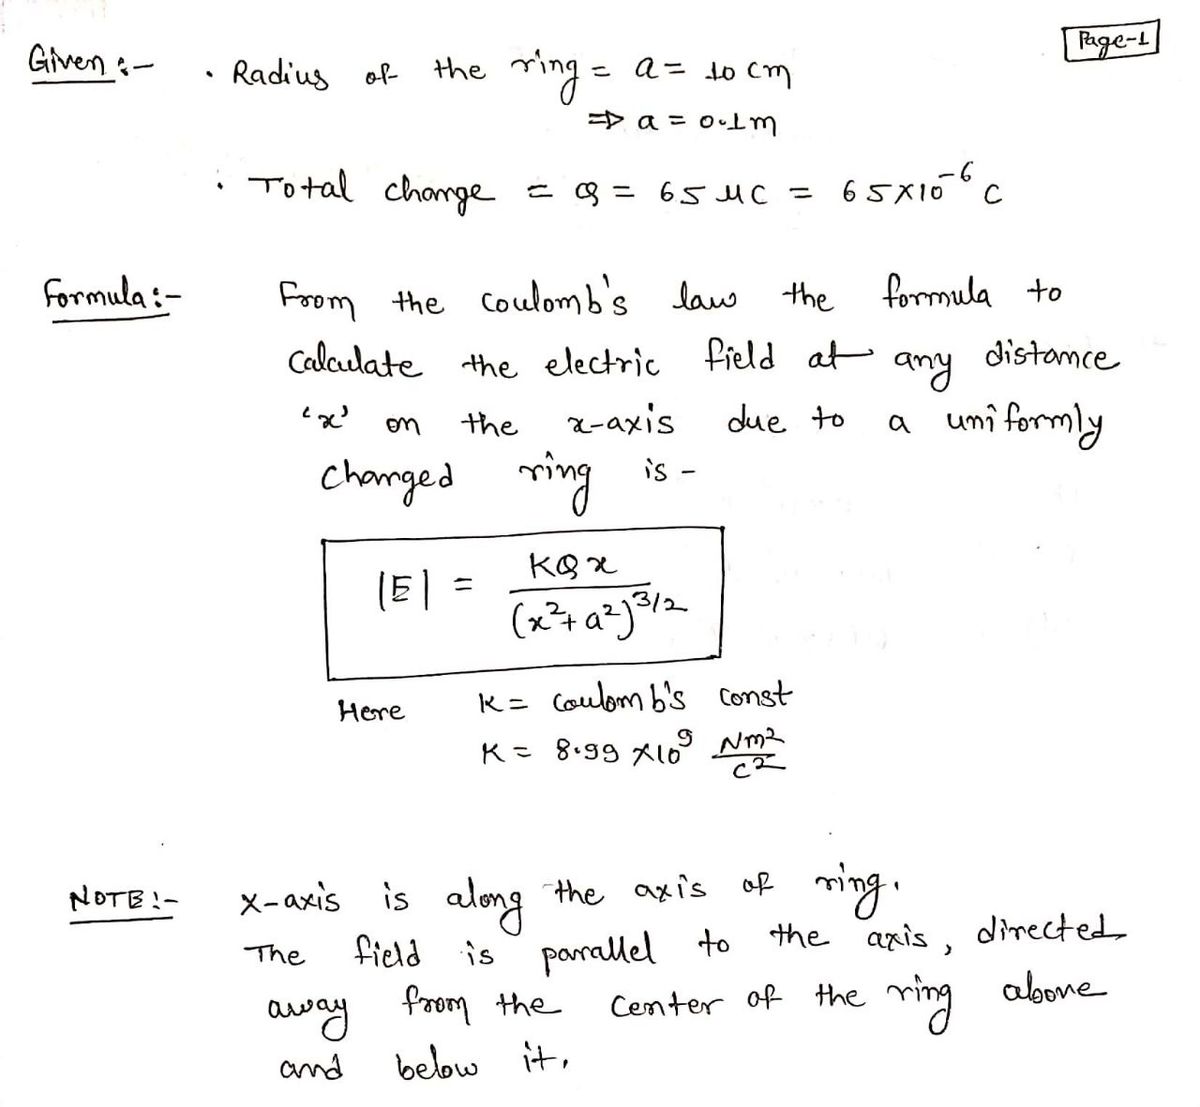 Page-1
Given :- • Radius of the ring = a = 10 cm
⇒ a = 0.1m
• Total charge = Q = 65 μC = 65×10⁻⁶ C
Formula :- From the coulomb's law the formula to
calculate the electric field at any distance
'x' on the x-axis due to a uniformly
charged ring is -
|E| = KQx / (x²+a²)^3/2
Here K = coulomb's const
K = 8.99 ×10⁹ Nm²/C²
NOTE :- X-axis is along the axis of ring.
The field is parallel to the axis, directed
away from the center of the ring above
and below it.